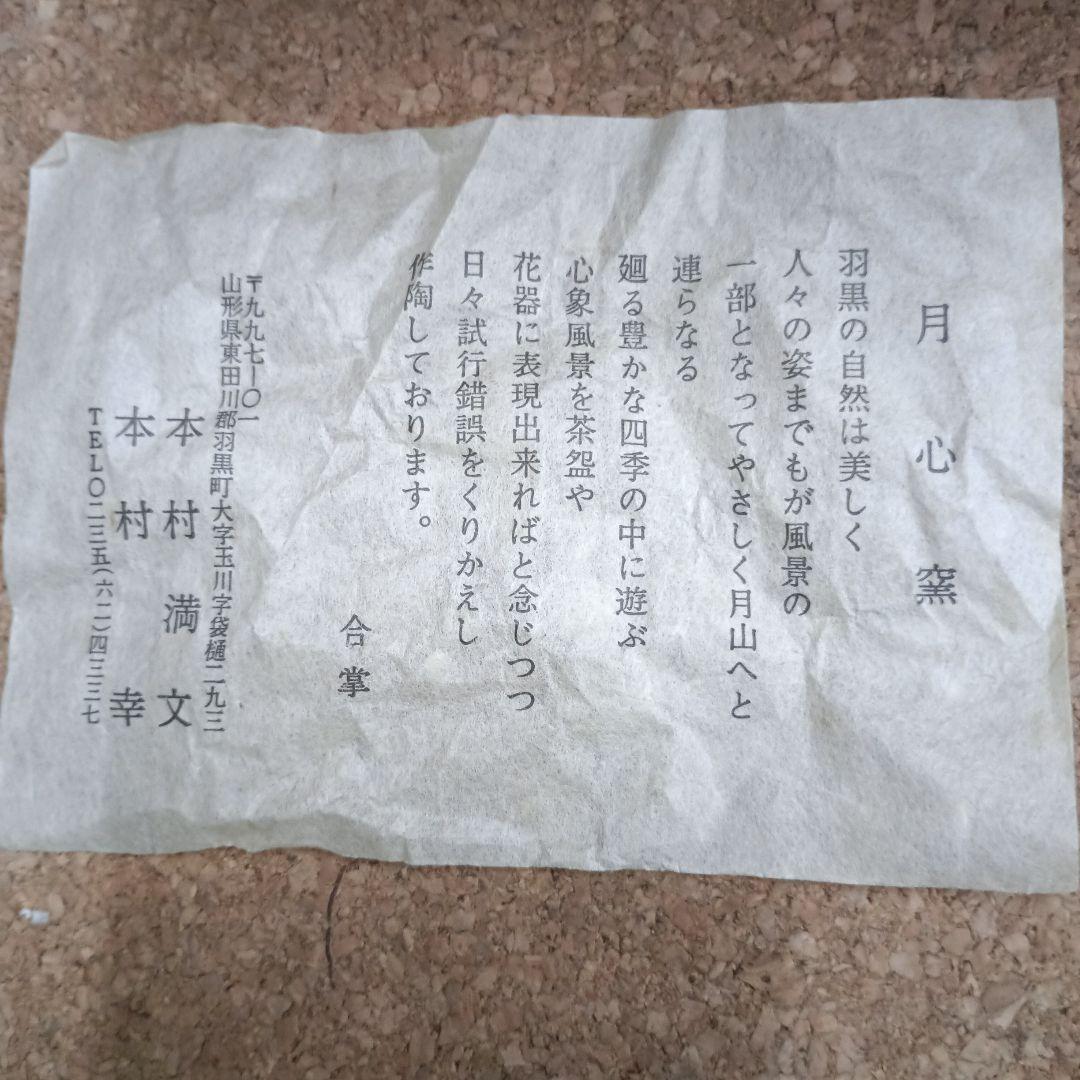 月心窯
羽黒の自然は美しく
人々の姿までもが風景の
一部となってやさしく月山へと
連らなる
廻る豊かな四季の中に遊ぶ
心象風景を茶盌や
花器に表現出来ればと念じつつ
日々試行錯誤をくりかえし
作陶しております。
合掌
〒九九七ー〇一
山形県東田川郡羽黒町大字玉川字袋樋二九三
本村満文
本村幸
TEL〇二三五(六二)四三三七